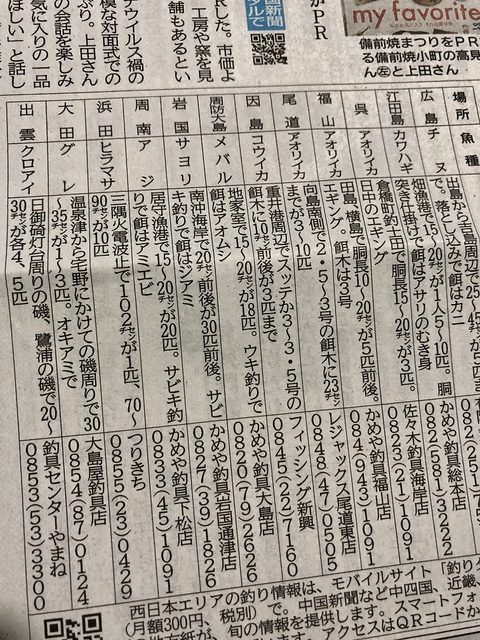 ナウイルス禍の
な対面式での
の会話を楽しみ
ぶり。上田さん
気に入りの一品
ほしい」と話し
した。市価よ
工房や窯を見
舗もあるとい
がPR
国新聞
タルで
my favorite
備前焼まつりをPR
る備前焼小町の高見
ん㊧と上田さん
場所
魚種
広島
チヌ
出島から吉島周辺で25〜45㌢ま
で。落とし込みで餌はカニ
082(251)
江田島
カワハギ
畑漁港で15〜20㌢が1人5〜10匹。胴
突き仕掛けで餌はアサリのむき身
かめや釣具総本店
082(581)3222
呉
アオリイカ
倉橋町釣士田で胴長15〜20㌢が3匹。
日中のエギング
佐々木釣具海岸店
0823(21)1091
福山
アオリイカ
田島、横島で胴長10〜20㌢が5匹前後。
エギング。餌木は3号
かめや釣具福山店
084(943)1091
尾道
アオリイカ
向島南側で2・5〜3号の餌木に23㌢
までが3〜10匹
ジャックス尾道東店
0848(47)0505
因島
コウイカ
重井港周辺でスッテか3〜3・5号の
餌木に10㌢前後が3匹まで
フィッシング新興
0845(22)7160
周防大島
メバル
地家室で15〜20㌢が18匹。ウキ釣りで
餌はアオムシ
かめや釣具大島店
0820(79)2626
岩国
サヨリ
南沖海岸で20㌢前後が30匹前後。サビ
キ釣りで餌はジアミ
かめや釣具岩国通津店
0827(39)1826
周南
アジ
居守漁港で15〜20㌢が20匹。サビキ釣
りで餌はアミエビ
かめや釣具下松店
0833(45)1091
浜田
ヒラマサ
三隅火電波止で102㌢が1匹、70〜
90㌢が10匹
つりきち
0855(23)0429
大田
グレ
温泉津から宅野にかけての磯周りで30
〜35㌢が1〜3匹。オキアミで
大島屋釣具店
0854(87)0124
出雲
クロアイ
日御碕灯台周りの磯、鷺浦の磯で20〜
30㌢が各4、5匹
釣具センターやまね
0853(53)3300
西日本エリアの釣り情報は、モバイルサイト「釣り
(月額300円、税別)で。中国新聞など中四国、近畿、
旬の情報を提供します。スマートフォ
アクセスはQRコードか